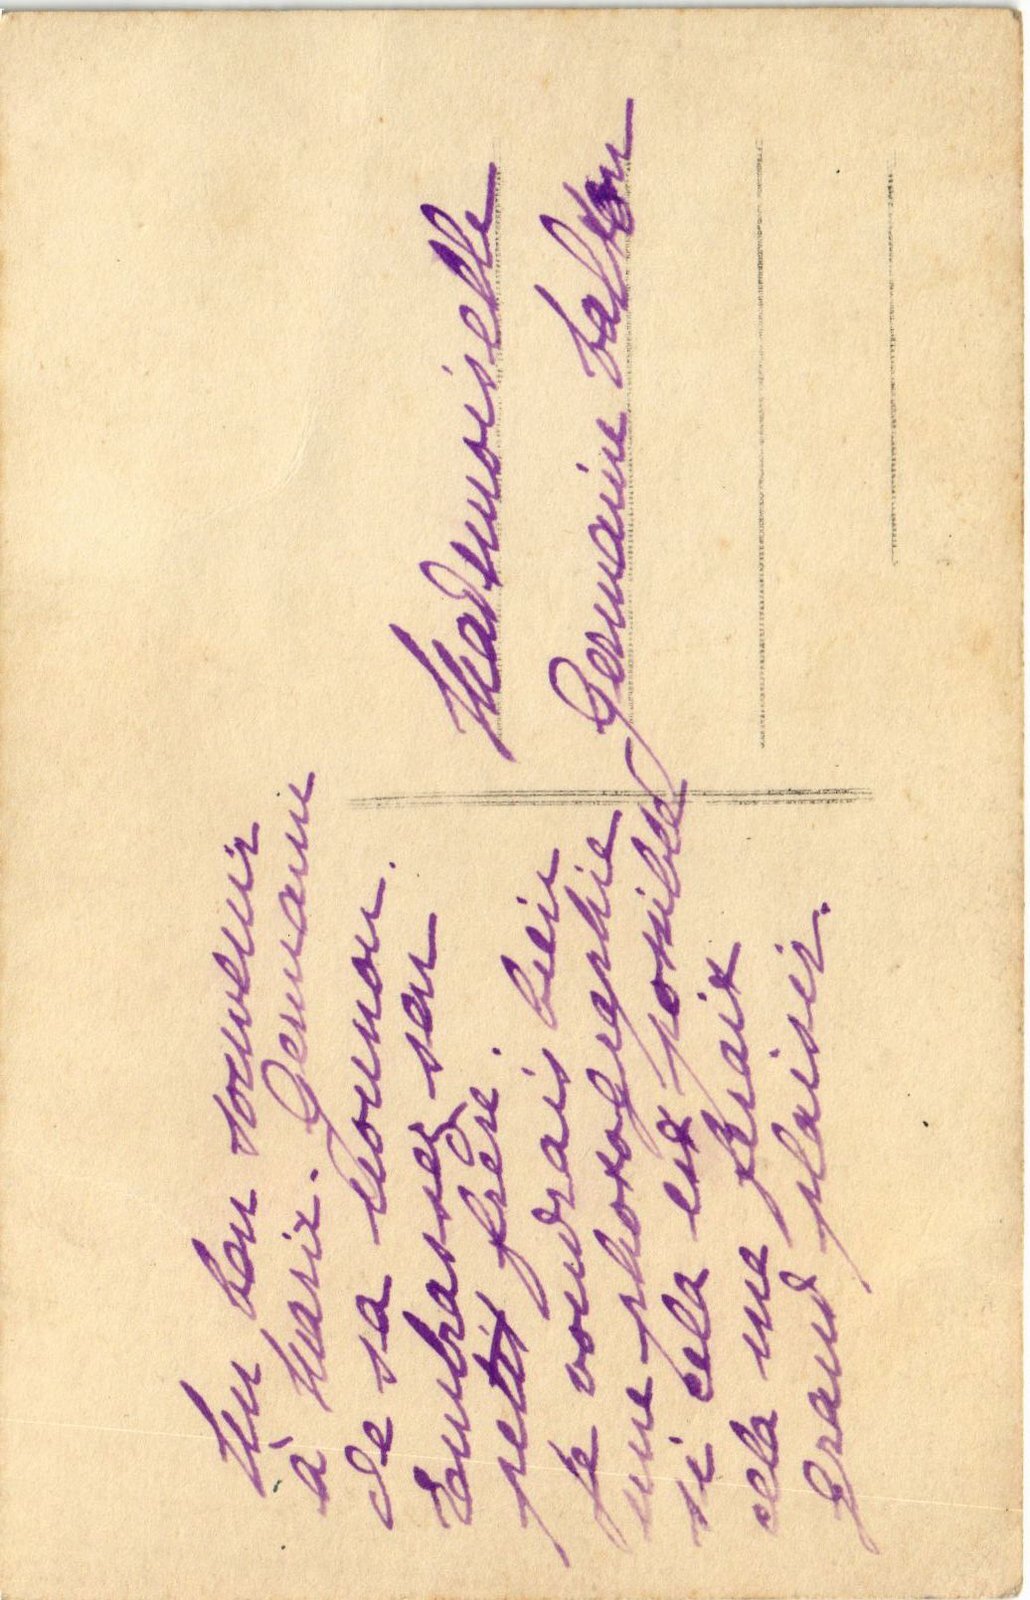 Un bon souvenir
à Marie. Germaine
de sa Nounou.
Embrasses son
petit frère.
je voudrais bien
une photographie
si cela est possible
cela me ferait
grand plaisir.
Mademoiselle
Germaine